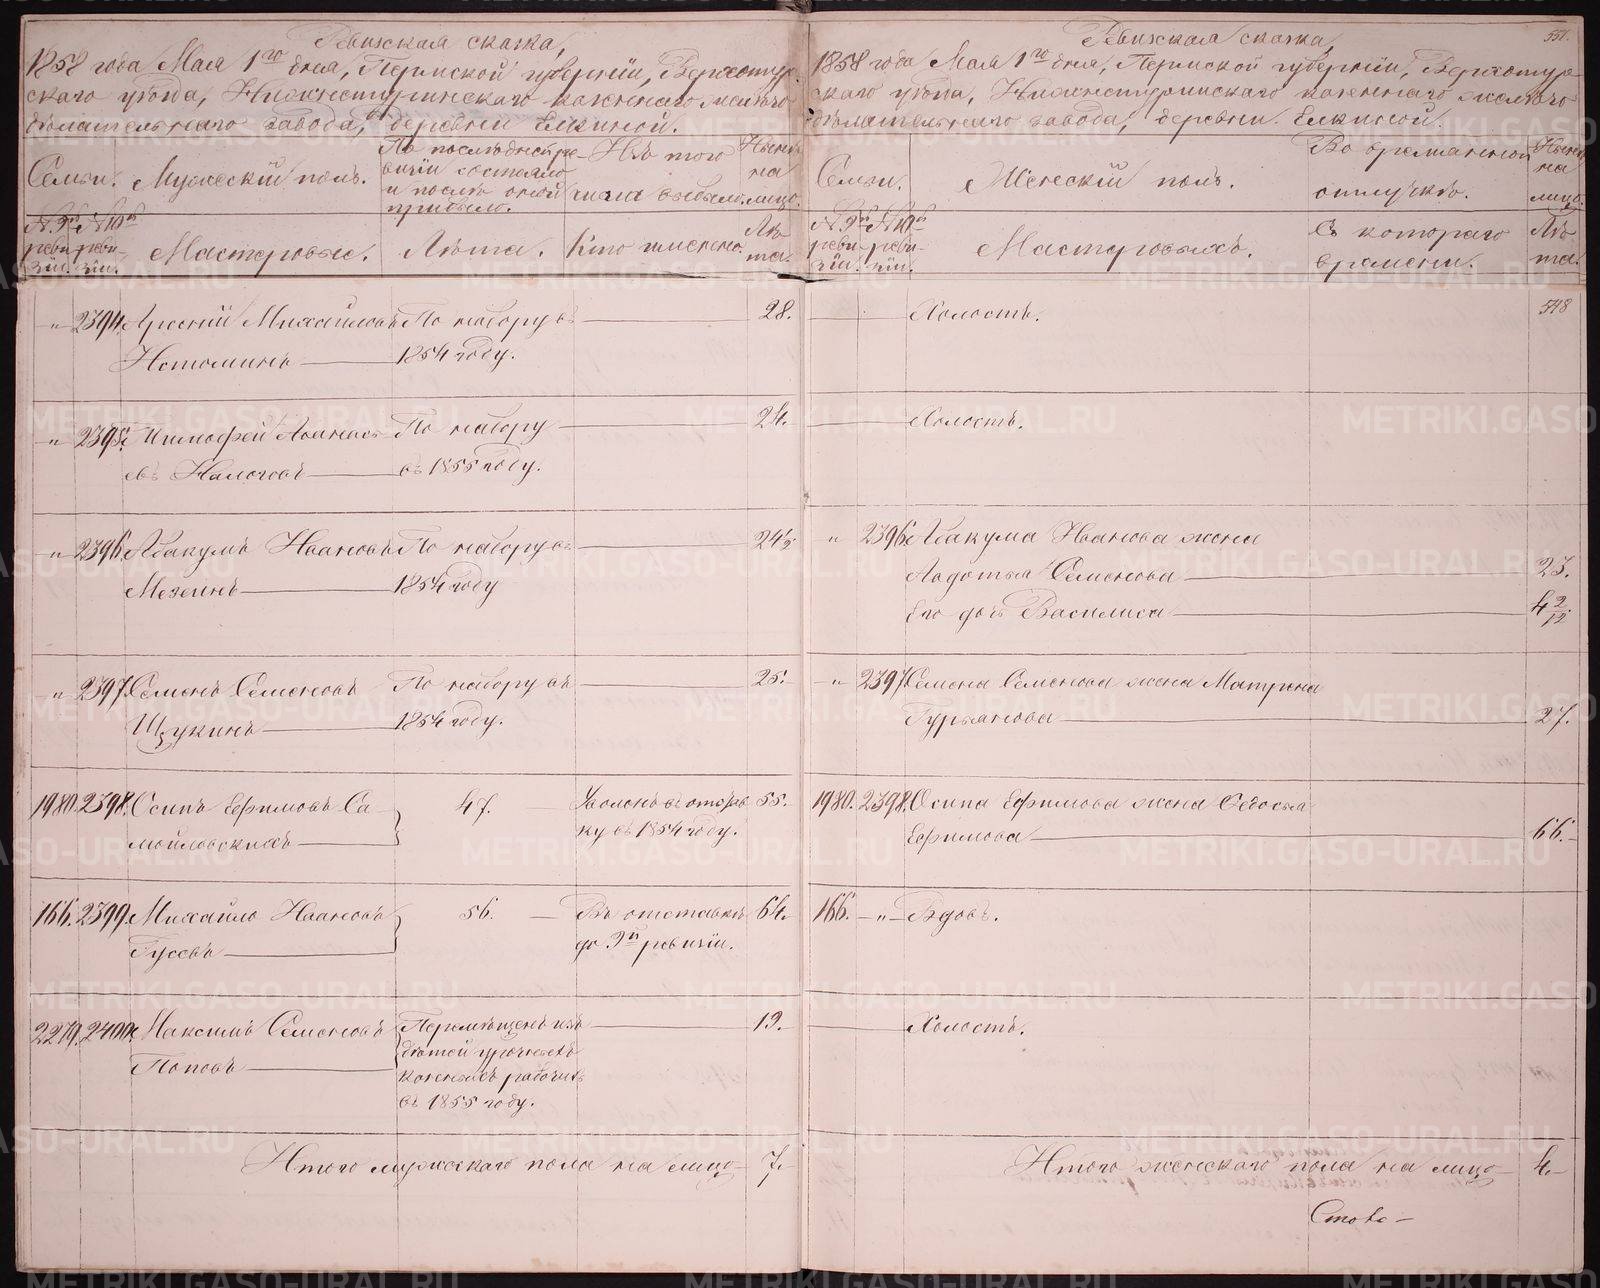 Ревизская сказка,
1858 года Мая 1го дня, Пермской губернiи, Верхотур-
скаго уѣзда, Нижнетуринскаго казеннаго желѣзо-
дѣлательнаго завода, деревни Елкиной.
Семьи. Мужескiй полъ. По послѣдней ре-
визiи состояло
и послѣ оной
прибыло. Изъ того
числа выбыло. Нынѣ
на
лицо.
№ 9й реви-
зiи. № 10й реви-
зiи. Мастеровые. Лѣта. Кто именно Лѣ-
та.
" 2394. Арсенiй Михайловъ По набору въ 28.
Истоминъ 1854 году.
" 2395. Тимофей Афанась По набору 24.
евъ Налоговъ въ 1855 году.
" 2396. Абакумъ Ивановъ По набору въ 24½
Мезенинъ 1854 году
" 2397. Семенъ Семеновъ По набору въ 25.
Щукинъ 1854 году.
1980. 2398. Осипъ Ефимовъ Са 47. Уволенъ въ отстав 55.
мойловскихъ ку въ 1854 году.
166. 2399. Михайло Ивановъ 56. Въ отставкѣ 64.
Гусевъ до 9й ревизiи.
2279. 2400. Максимъ Семеновъ Перемѣщенъ изъ 19.
Поповъ дѣтей урочныхъ
казенныхъ рабочихъ
въ 1855 году.
Итого мужескаго пола на лицо 7.
551.
Ревизская сказка,
1858 года Мая 1го дня, Пермской губернiи, Верхотур-
скаго уѣзда, Нижнетуринскаго казеннаго желѣзо-
дѣлательнаго завода, деревни Елкиной.
Семьи. Женескiй полъ. Во временной
отлучкѣ. Нынѣ
на
лицо.
№ 9й реви-
зiи. № 10й реви-
зiи. Мастеровыхъ. Съ котораго
времени. Лѣ-
та.
548
Холостъ.
Холостъ.
" 2396. Абакума Иванова жена
Авдотья Семенова 23.
Его дочь Василиса 4 2/12.
" 2397. Семена Семенова жена Матрена
Гурьянова 27.
1980. 2398. Осипа Ефимова жена Федосья
Ефимова 66.
166. " Вдовъ.
Холостъ.
Итого женскаго пола на лицо 4.
METRIKI.GASO-URAL.RU